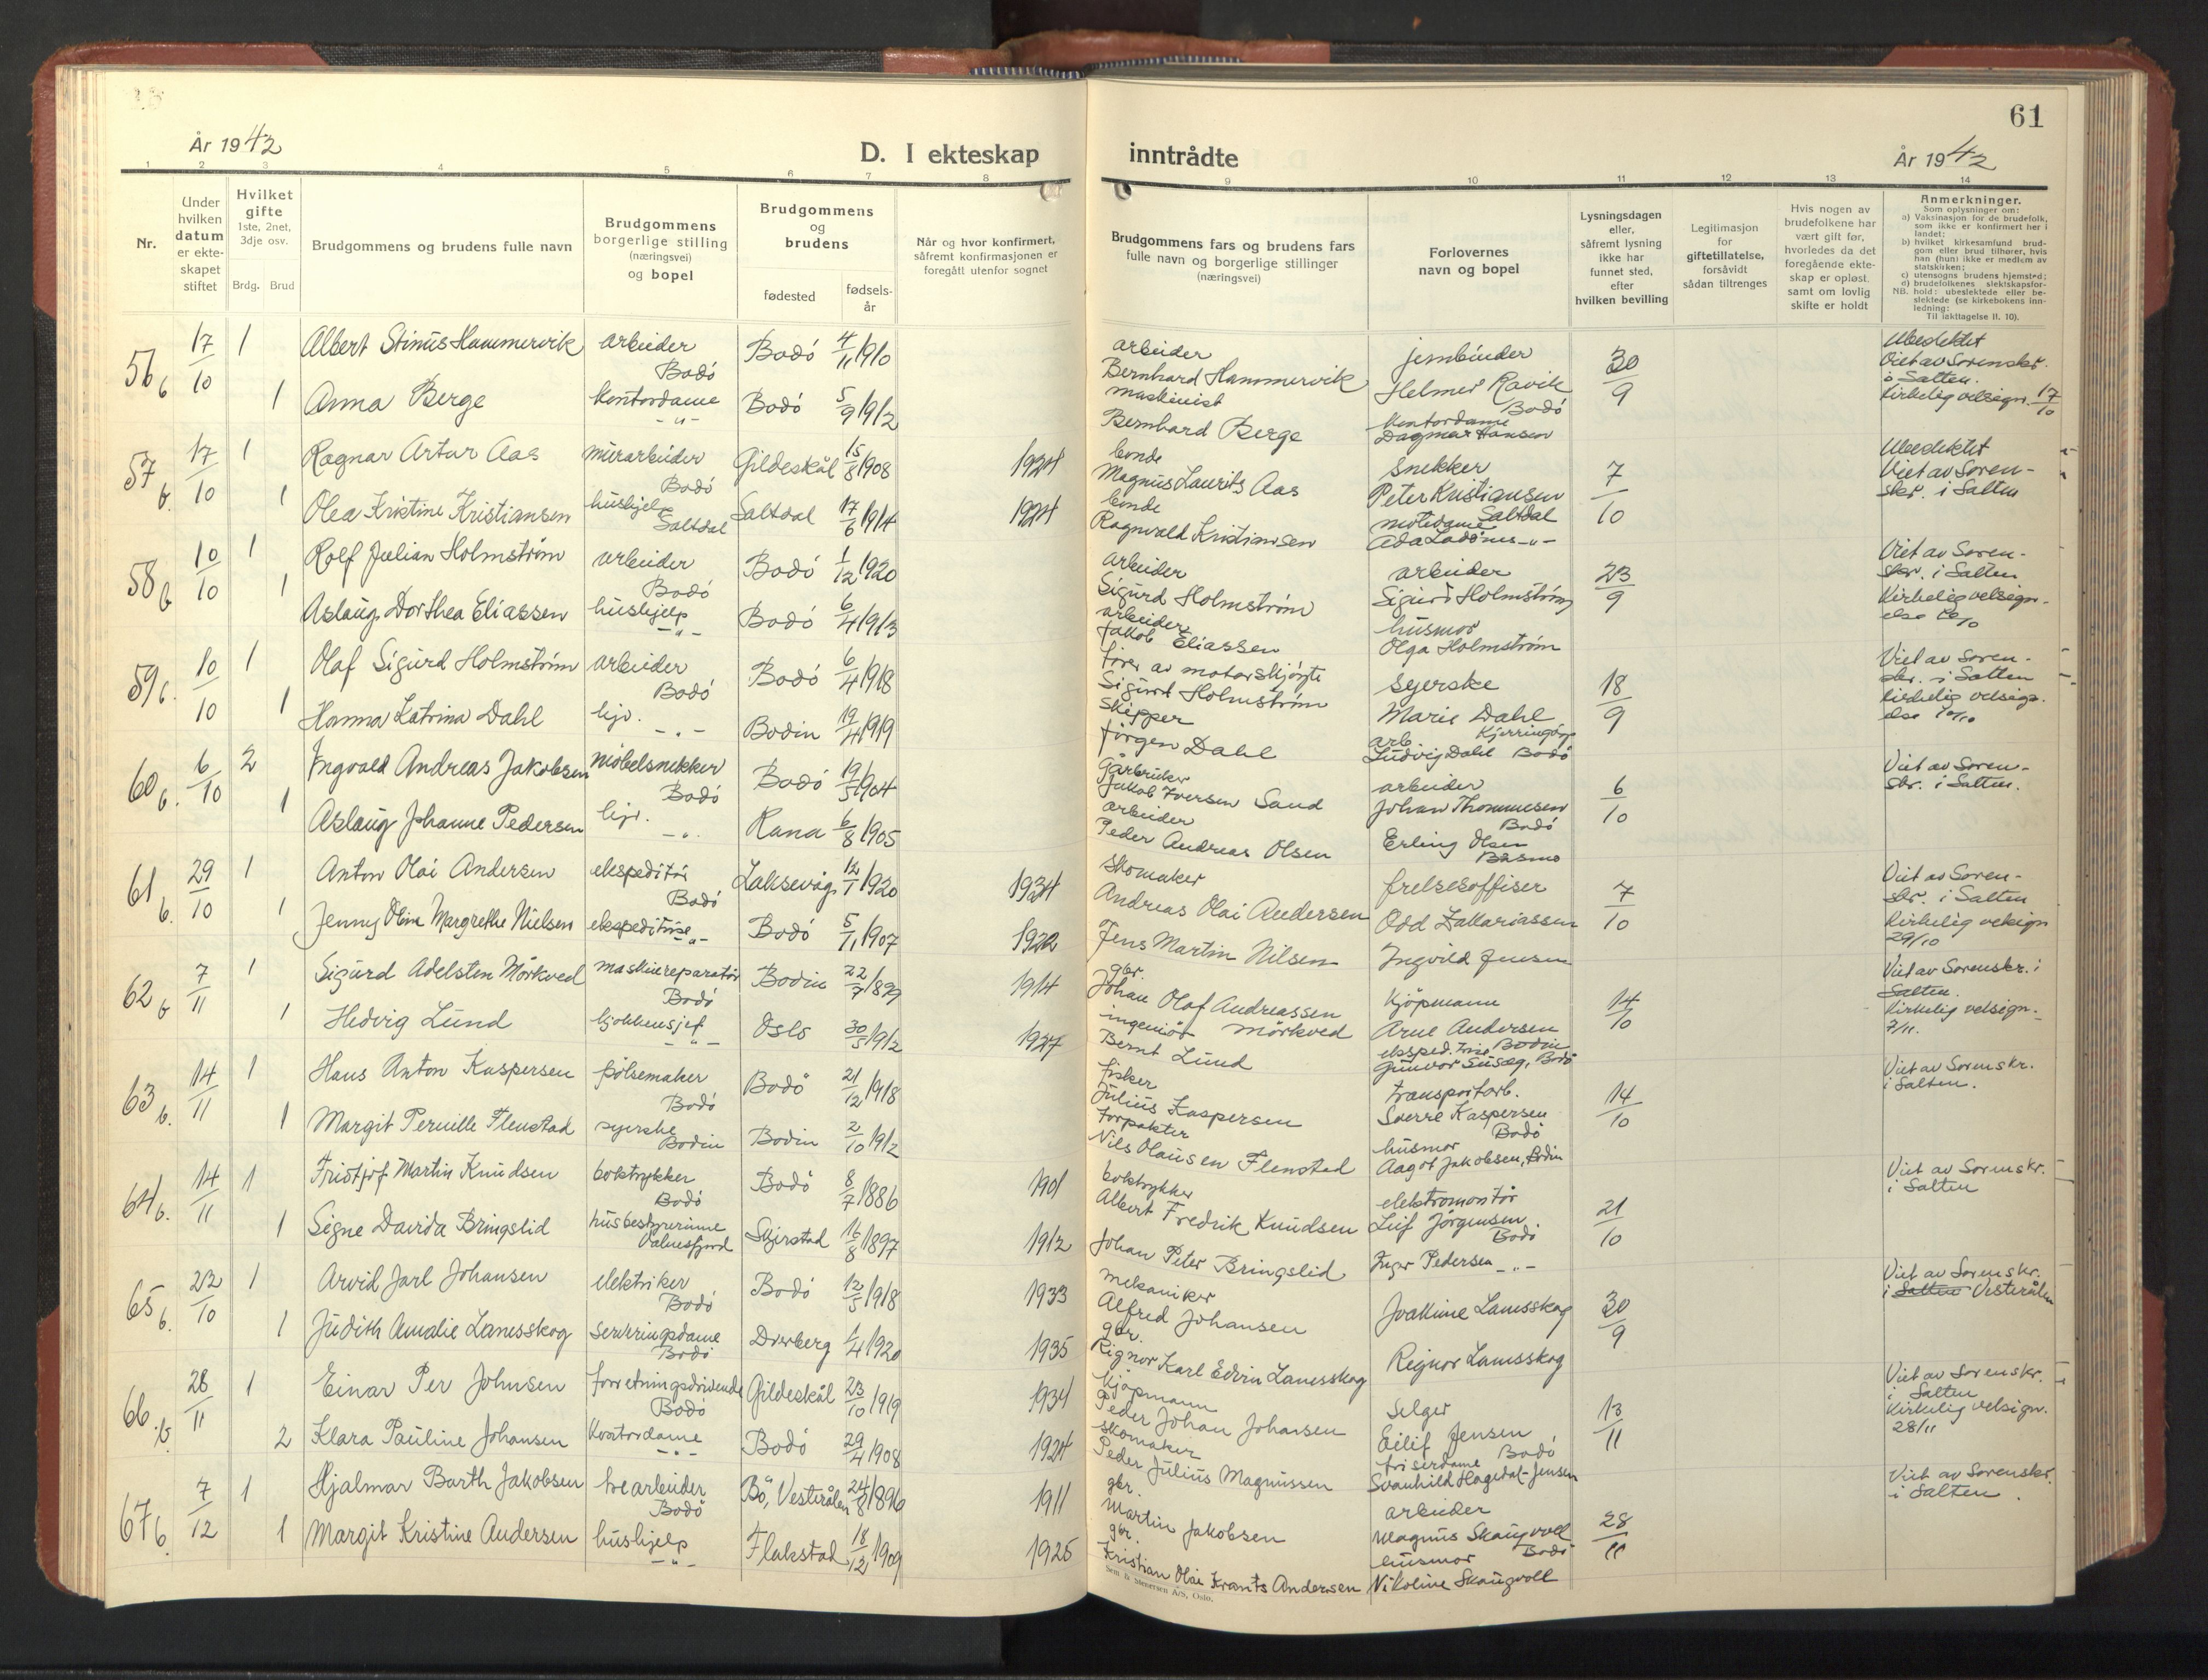 61
År 1942
D. I ekteskap inntrådte
År 1942
1 2 3 4 5 6 7 8 9 10 11 12 13 14
Nr.
Under hvilken datum er ekte-skapet stiftet
Hvilket gifte 1ste, 2net, 3dje osv.
Brdg. Brud
Brudgommens og brudens fulle navn
Brudgommens borgerlige stilling (næringsvei) og bopel
Brudgommens og brudens
fødested
fødsels-år
Når og hvor konfirmert, såfremt konfirmasjonen er foregått utenfor sognet
Brudgommens fars og brudens fars fulle navn og borgerlige stillinger (næringsvei)
Forlovernes navn og bopel
Lysningsdagen eller, såfremt lysning ikke har funnet sted, efter hvilken bevilling
Legitimasjon for giftetillatelse, forsåvidt sådan tiltrenges
Hvis nogen av brudefolkene har vært gift før, hvorledes da det foregående ekte-skap er opløst. samt om lovlig skifte er holdt
Anmerkninger.
Som oplysninger om:
a) Vaksinasjon for de brudefolk, som ikke er konfirmert her i landet;
b) hvilket kirkesamfund brud-gom eller brud tilhører, hvis han (hun) ikke er medlem av statskirken;
c) utensogns brudens hjemsted;
d) brudefolkenes slektskapsfor-hold: ubeslektede eller be-slektede (se kirkebokens inn-ledning:
NB.
Til iakttagelse II. 10).
56 b. 17/10 1 Albert Stinius Hammervik arbeider Bodó Bodó 4/11 1910 arbeider Bernhard Hammervik jernbinder Helmer Ravik Bodó 30/9 Ubeslektet Viet av Sorenskr. i Salten. Kirkelig velsign. 17/10
1 Anna Berge kontordame -"- Bodó 5/9 1912 maskinist Bernhard Berge kontordame Dagmar Hansen
57 b. 17/10 1 Ragnar Artur Aas murarbeider Bodó Gildeskål 15/8 1908 1924 bonde Magnus Laurits Aas snekker Peter Kristiansen Saltdal 7/10 Ubeslektet Viet av Soren-skr. i Salten
1 Olea Kristine Kristiansen hushjelp Saltdal Saltdal 17/6 1914 bonde Ragnvald Kristiansen motedame -"-
58 b 10/10 1 Rolf Julian Holmström arbeider Bodó Bodó 1/12 1920 arbeider Sigurd Holmström arbeider Sigurd Holmström 23/9 Viet av Soren-skr. i Salten Kirkelig velsign-else 10/10
1 Aslaug Dorthea Eliassen hushjelp -"- Bodó 6/4 1913 arbeider Jakob Eliassen husmor Olga Holmström
59 b. 10/10 1 Olaf Sigurd Holmström arbeider Bodó Bodó 6/4 1918 fører av motorskjöyte Sigurd Holmström syerske Marie Dahl Kjerringøy 18/9 Viet av Soren-skr. i Salten kirkelig velsign-else 10/10
1 Hanna Katrina Dahl hjv. -"- Bodin 19/4 1919 skipper Jörgen Dahl arb. Ludvig Dahl Bodó
60 b. 6/10 2 Ingvald Andreas Jakobsen möbelsnekker Bodó Bodó 19/5 1904 gårbruker Jakob Iversen Sand arbeider Johan Thommesen Bodó 6/10 Viet av Soren-skr. i Salten.
1 Aslaug Johanne Pedersen hjv. -"- Rana 6/8 1905 arbeider Peder Andreas Olsen Erling Olsen Båsmo
61 b. 29/10 1 Anton Olai Andersen ekspeditör Bodó Laksevåg 12/1 1920 1934 skomaker Andreas Olai Andersen frelsesoffiser Odd Zakariassen 7/10 Viet av Soren-skr. i Salten Kirkelig velsign 29/10
1 Jenny Oline Margrethe Nielsen ekspeditrise -"- Bodó 5/11 1907 1922 Jens Martin Nilsen Ingvild Jensen
62 b 7/11 1 Sigurd Adelsten Mörkved maskinreparatör Bodó Bodin 22/7 1899 1914 gbr. Johan Olaf Andreassen Mörkved kjöpmann Arne Andersen Bodin 14/10 Viet av Sorenskr. i Salten. Kirkelig velsign. 7/11.
1 Hedvig Lund kjökkensjef -"- Oslo 30/5 1912 1927 ingeniör Bernt Lund eksped.trise Gunvor Bodó
63 b. 14/11 1 Hans Anton Kaspersen pölsemaker Bodó Bodó 21/12 1918 fisker Julius Kaspersen transportarb. Sverre Kaspersen Bodó 14/10 Viet av Sorenskr. i Salten.
1 Margit Pernille Flenstad syerske Bodin Bodin 2/10 1912 forpakter Nils Olausen Flenstad husmor Aagot Jakobsen, Bodin
64 b. 14/11 1 Fridtjof Martin Knudsen boktrykker Bodó Bodó 8/7 1886 1901 boktrykker Albert Fredrik Knudsen elektromontör Leif Jörgensen Bodó 21/10 Viet av Sorenskr. i Salten
1 Signe Davida Bringslid husbestyrerinne Valnesfjord Skjerstad 16/8 1897 1912 Johan Peter Bringslid Inger Pedersen -"-
65 b. 22/10 1 Arvid Jarl Johansen elektriker Bodó Bodó 12/5 1918 1933 mekaniker Alfred Johansen Joakime Lanesskog 30/9 Viet av Sorenskr. i Salten Vesterålen
1 Judith Amalie Lanesskog serveringsdame Bodó Dverberg 1/4 1920 1935 gbr. Rignor Karl Edvin Lanesskog Rignor Lanesskog
66 b. 28/11 1 Einar Per Johnsen forretningsdrivende Bodó Gildeskål 23/10 1919 1934 kjöpmann Peder Johan Johansen selger Eilif Jensen Bodó 13/11 Viet av Sorenskr. i Salten Kirkelig velsign. 28/11
2 Klara Pauline Johansen kontordame -"- Bodó 29/4 1908 1924 skomaker Peder Julius Magnussen friserdame Svanhild Hagedal-Jensen
67 b. 7/12 1 Hjalmar Barth Jakobsen trearbeider Bodó Bö, Vesterålen 24/8 1896 1911 gbr. Martin Jakobsen arbeider Magnus Skaugvoll Bodó 28/11 Viet av Sorenskr. i Salten.
1 Margit Kristine Andersen hushjelp -"- Flakstad 18/12 1909 1925 gbr. Kristian Olai Krants Andersen husmor Nikoline Skaugvoll
Sem & Stenersen A/S, Oslo.